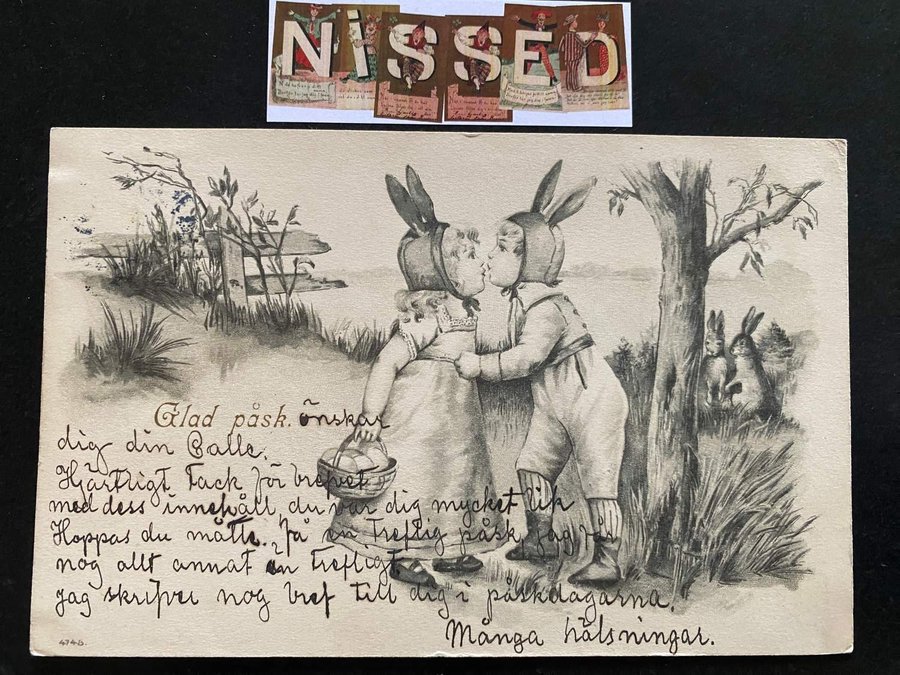 NiSSED
Glad påsk. önskar
dig din Calle.
Hjärtligt Tack för brefvet
med dess innehåll, du var dig mycket lik
Hoppas du måtte. få en treflig påsk, jag får
nog allt annat än trefligt
jag skrifver nog bref till dig i påskdagarna.
Många hälsningar.
474b.